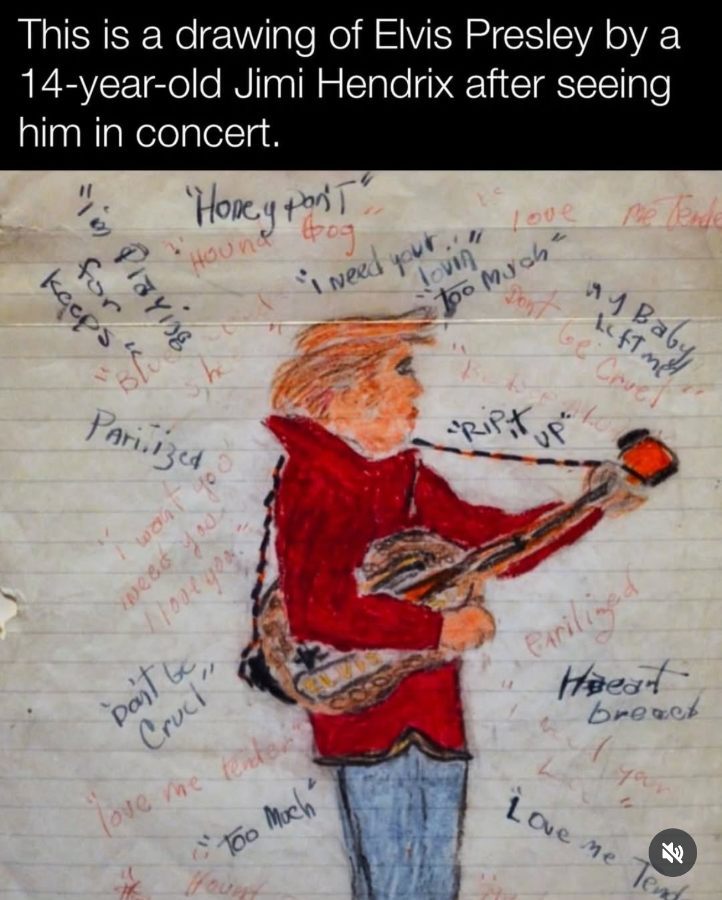 This is a drawing of Elvis Presley by a
14-year-old Jimi Hendrix after seeing
him in concert.
"Honey Don'T"
"I'm Playing
for
Keeps"
"Hound Dog"
love me Tende
"I need your
lovin"
"Too Much"
Dont
be Cruel"
"My Baby
Left me"
"Blue
"RiPit
UP"
Parilized
"I want you
need you
I love you"
parilized
"Don't be
Cruel"
Heart
breack
your
"love me tender"
"Too Much"
"Love me Tend